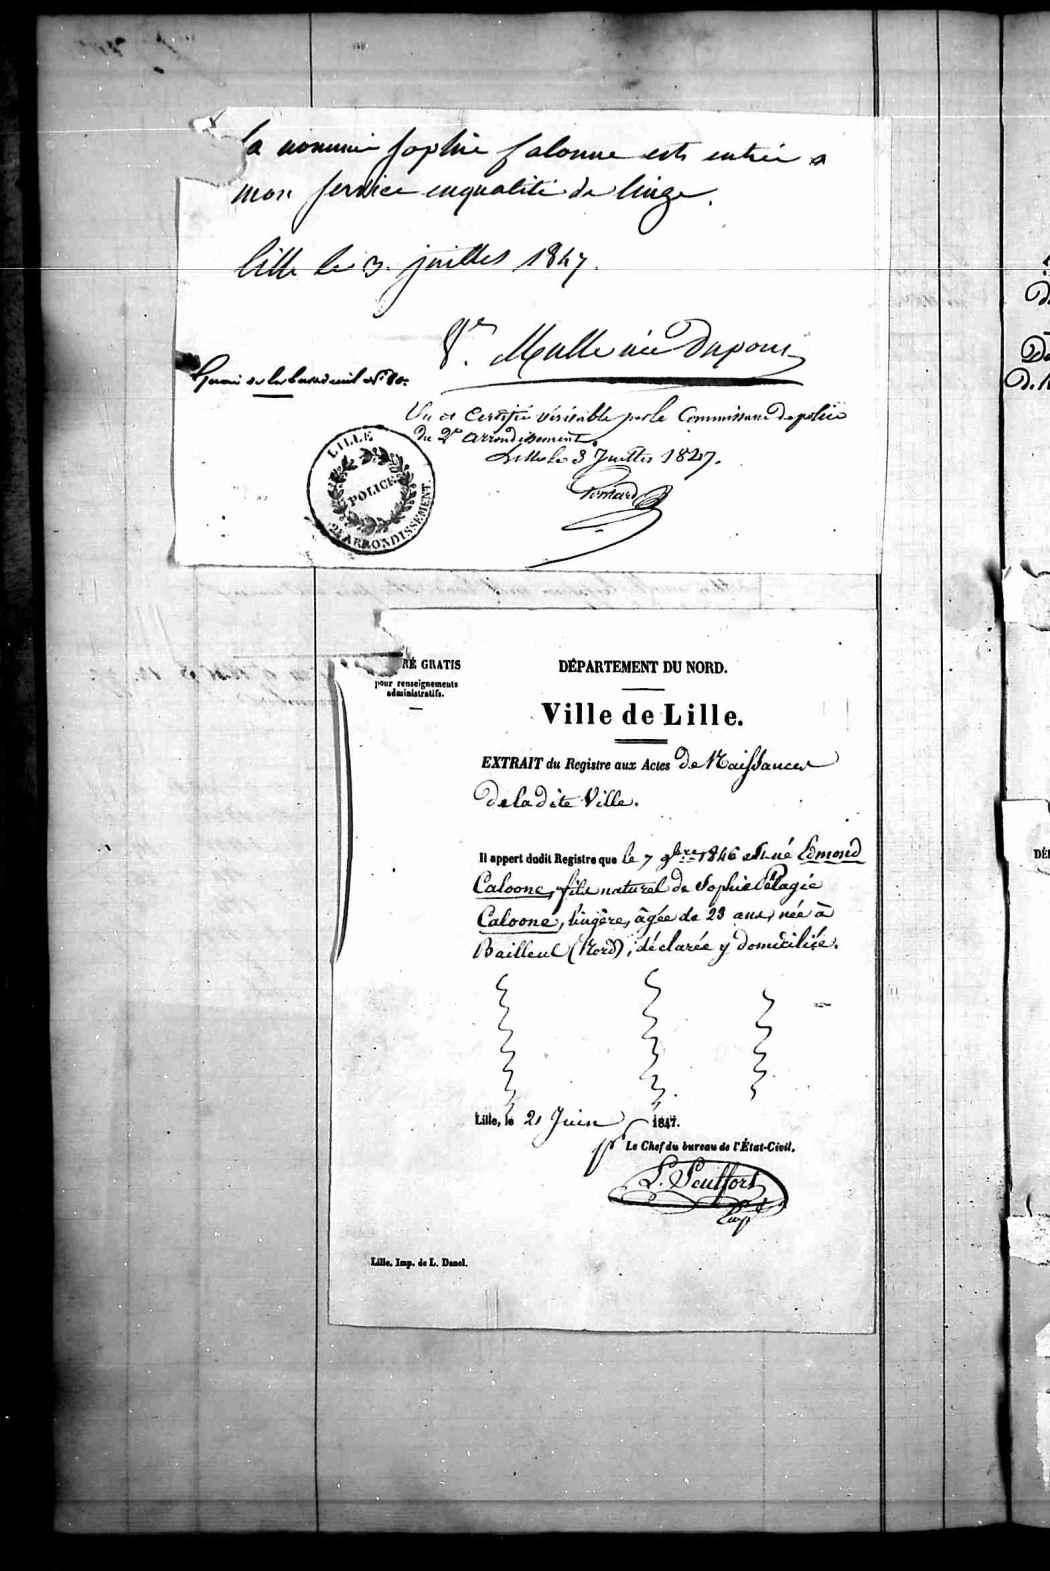 la nommée Sophie Calonne est entrée a
mon service en qualité de linge.
Lille le 3 juilles 1847.
Ve. Mulle née Dupont
Quai de la N° 80.
Vu et Certifié véritable par le Commissaire de police
du 2e arrondissement.
Lille le 3 Juillet 1847.
LILLE
POLICE
2E ARRONDISSEMENT.
RÉ GRATIS
pour renseignements
administratifs.
DÉPARTEMENT DU NORD.
Ville de Lille.
EXTRAIT du Registre aux Actes de Naissances
de la dite Ville.
Il appert dudit Registre que le 7 9bre 1846 est né Edmond
Caloone, fils naturel de Sophie Pélagie
Caloone, lingère, âgée de 23 ans, née à
Bailleul (Nord), déclarée y domiciliée.
Lille, le 21 Juin 1847.
pr Le Chef du bureau de l'État-Civil,
Lille. Imp. de L. Danel.